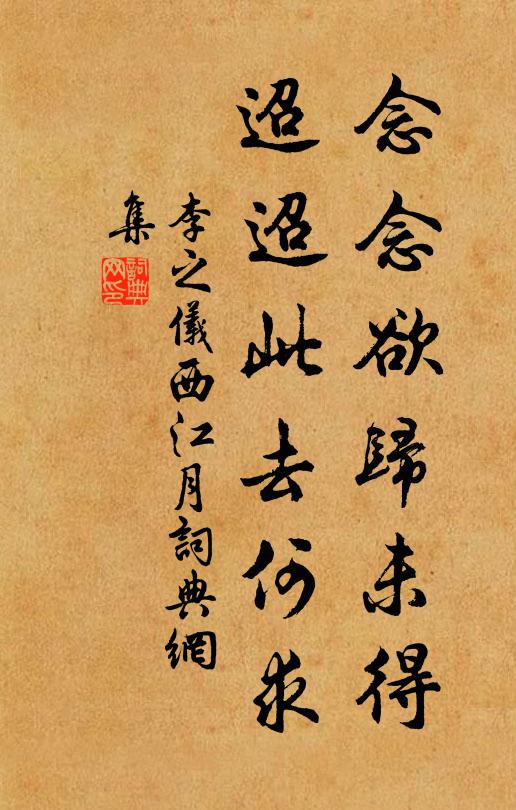 念念欲歸未得
迢迢此去何求
李之儀西江月詞典網
集
詞典
网印